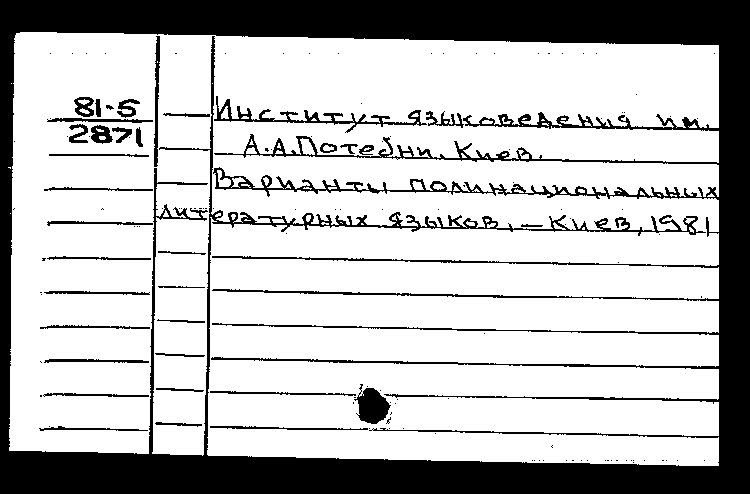 81-5
2871
Институт языковедения им.
А.А.Потебни. Киев.
Варианты полинациональных
литературных языков. – Киев, 1981